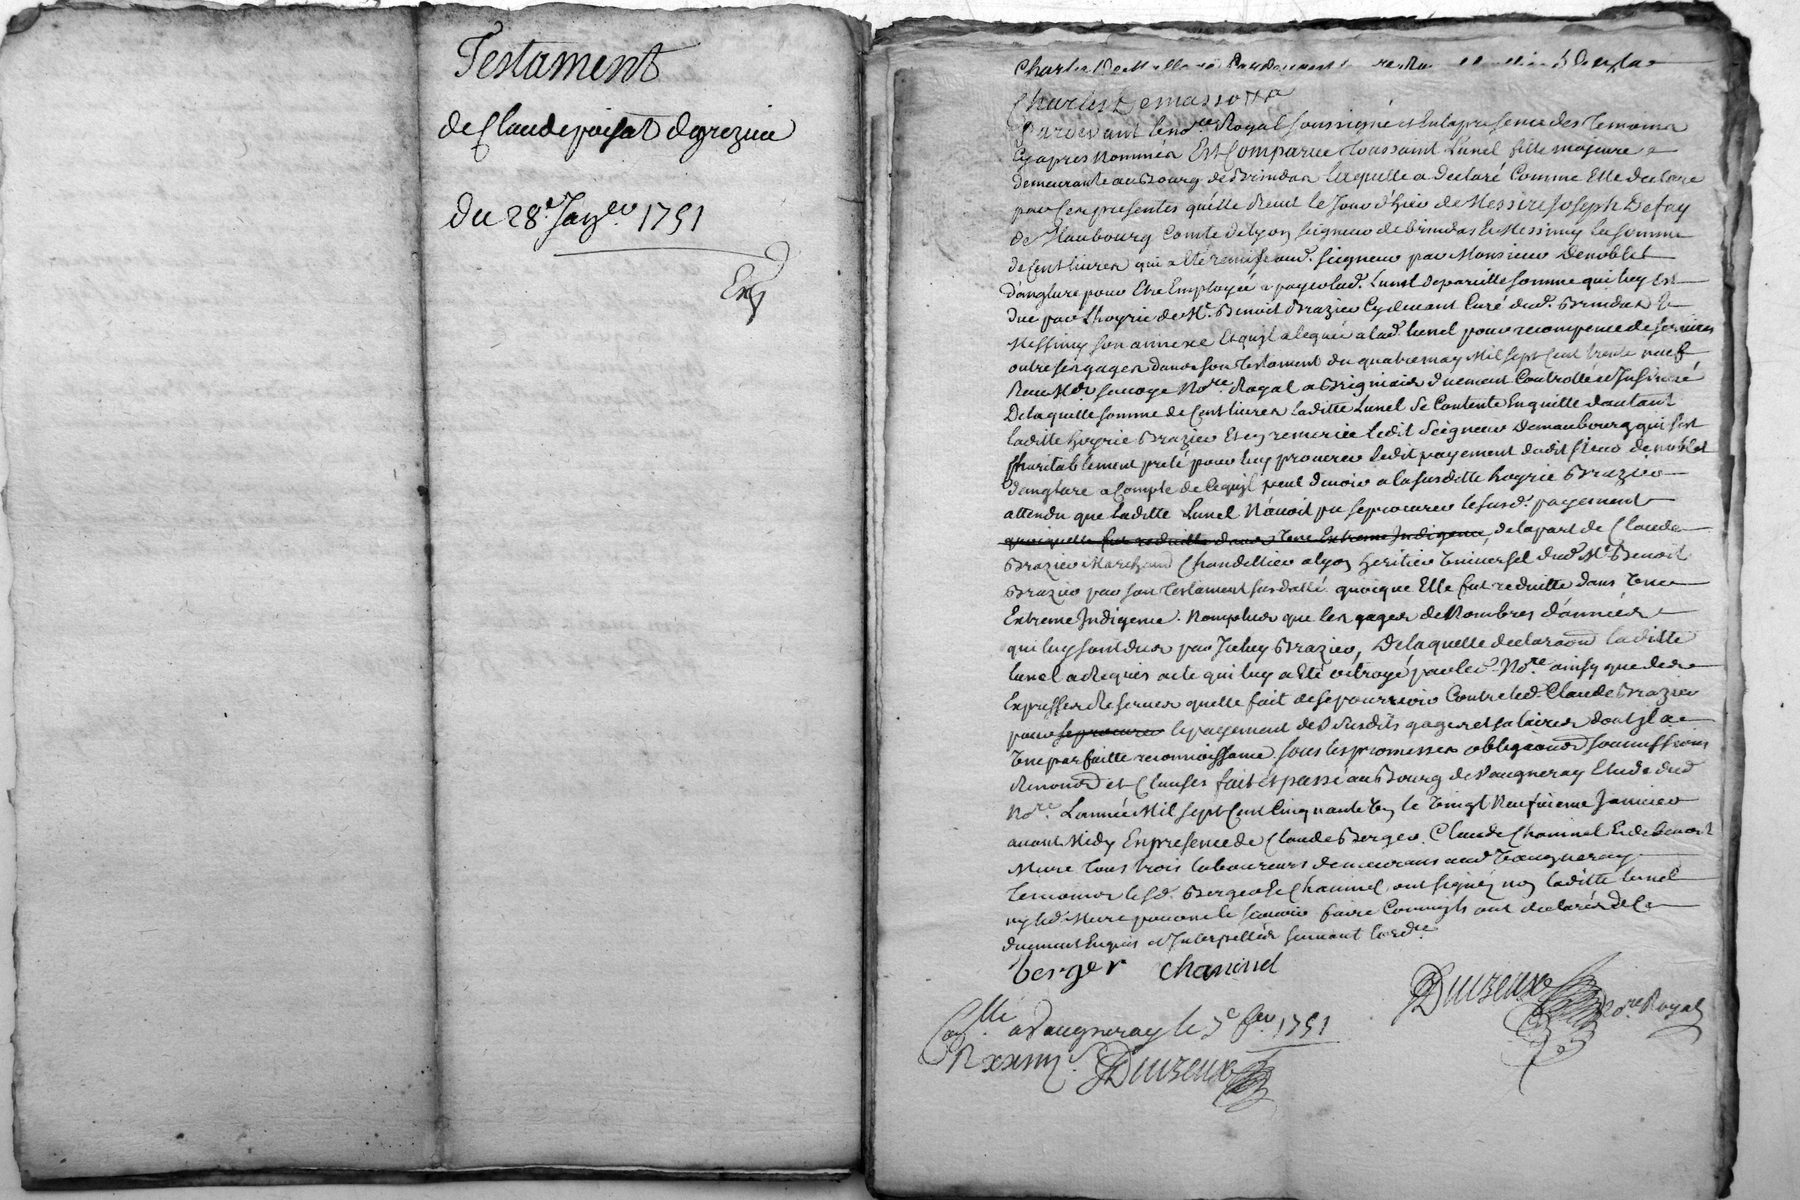 Testament
de Claude poisat dgrezieu
du 28e. Janv.er 1751
Exp
Charles
Charles Demasso
Pardevant le no.re Royal soussigné et en la presence des temoins
Cyapres nommés Est Comparue toussaint Lunel fille majeure
demeurante au Bourg de Brindas laquelle a declaré Comme Elle declare
par Ces presentes quelle Receut le Jour d'hier de Messire Joseph Defay
de Maubourg Comte de Lyon seigneur de brindas & Messimy la somme
de Cent livres qui a été remise aud. seigneur par Monsieur Denoblet
d'anglure pour Etre Employée a payer lad. Lunel de pareille somme qui luy Est
due par Lhoyrie de Mr. Benoit Brazier Cydevant Curé dud. Brindas &
Messimy son annexe Et quil a leguée a lad. lunel pour recompense de services
outre ses gages dans son testament du quatre may Mil sept Cent trente neuf
Receu Me. sauvage No.re Royal a Brignais duement Controllé & Insinué
De laquelle somme de Cent livres laditte Lunel se Contente En quitte d'autant
laditte hoyrie Brazier Et en remercie ledit seigneur Demaubourg qui s'est
Charitablement preté pour luy procurer ledit payement dudit sieur denoblet
d'anglure a Compte de Ce quil peut devoir a la susditte hoyrie Brazier
attendu que laditte Lunel N'avoit pu se procurer le susd. payement
quoiquelle fut reduitte dans une Extreme Indigence, de la part de Claude
Brazier Marchand Chandellier a lyon heritier universel dud. Mr. Benoit
Brazier par son testament susdatté quoique Elle fut reduitte dans une
Extreme Indigence. Nonplus que les gages de Nombres d'années
qui luy sont dus par Iceluy Brazier, De laquelle declaraon laditte
lunel a Requis acte qui luy a Eté octroyé par led. No.re ainsy que des
Expresses Reserves quelle fait de se pourvoir Contre led. Claude Brazier
pour se procurer le payement des susdits gages et salaires dont il a
une parfaitte reconnoissance sous les promesses obligaons soumissions
Renonons et Clauses fait et passé au Bourg de Vaugneray Etude dud.
No.re. L'année Mil sept Cent Cinquante un le vingt Neufvieme Janvier
avant Midy En presence de Claude Berger, Claude Chaninel & de benoit
Mure tous trois laboureurs demeurans aud. Vaugneray
temoins lesd. Berger & Chaninel, ont signés non laditte lunel
ny led. Mure pour ne le scavoir faire Comme ils ont declarés de Ce
duement Enquis et Interpellés suivant lord.ce
berger chaninel
Duizeux no.re Royal
Con.llé a Vaugneray le 5e fev. 1751
R xxiiii s. Duizeux